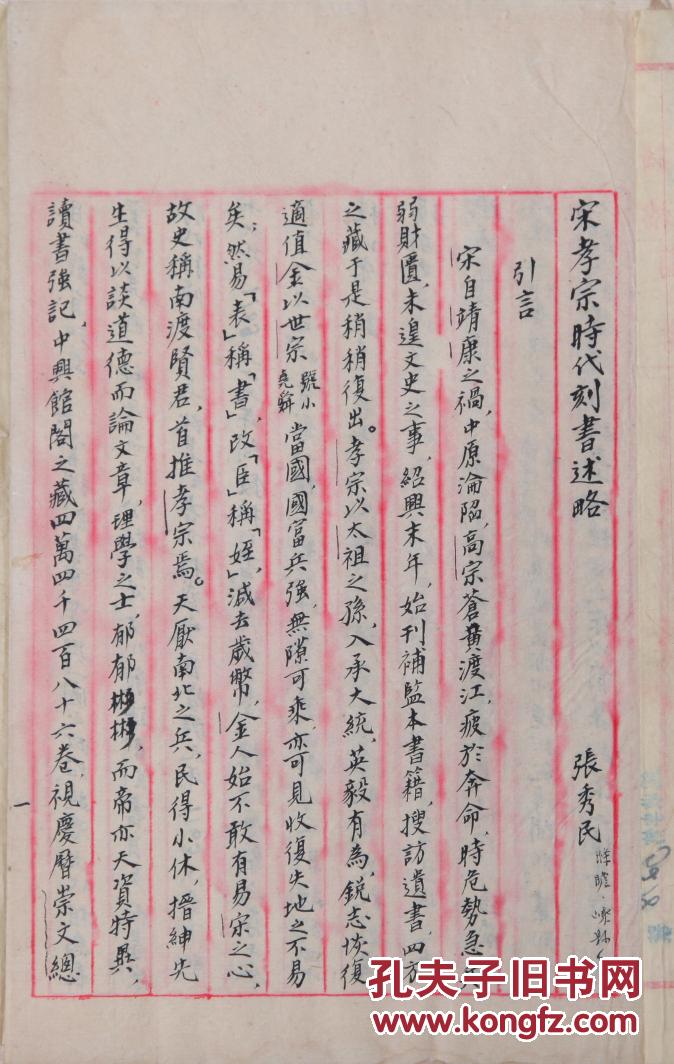 宋孝宗時代刻書述略 張秀民
引言
宋自靖康之禍,中原淪陷,高宗蒼黃渡江,疲於奔命,時危勢急,
弱財匱,未遑文史之事,紹興末年,始刊補監本書籍,搜訪遺書,四方
之藏于是稍稍復出。孝宗以太祖之孫,入承大統,英毅有為,銳志恢復
適值金以世宗號小堯舜當國,國富兵强,無隙可乘,亦可見收復失地之不易
矣;然易「表」稱「書」,改「臣」稱「姪」,減去歲幣,金人始不敢有易宋之心,
故史稱南渡賢君,首推孝宗焉。天厭南北之兵,民得小休,搢紳先
生得以談道德而論文章,理學之士,郁郁彬彬,而帝亦天資特異,
讀書强記,中興館閣之藏四萬四千四百八十六卷,視慶曆崇文總
一
孔夫子旧书网
www.kongfz.com